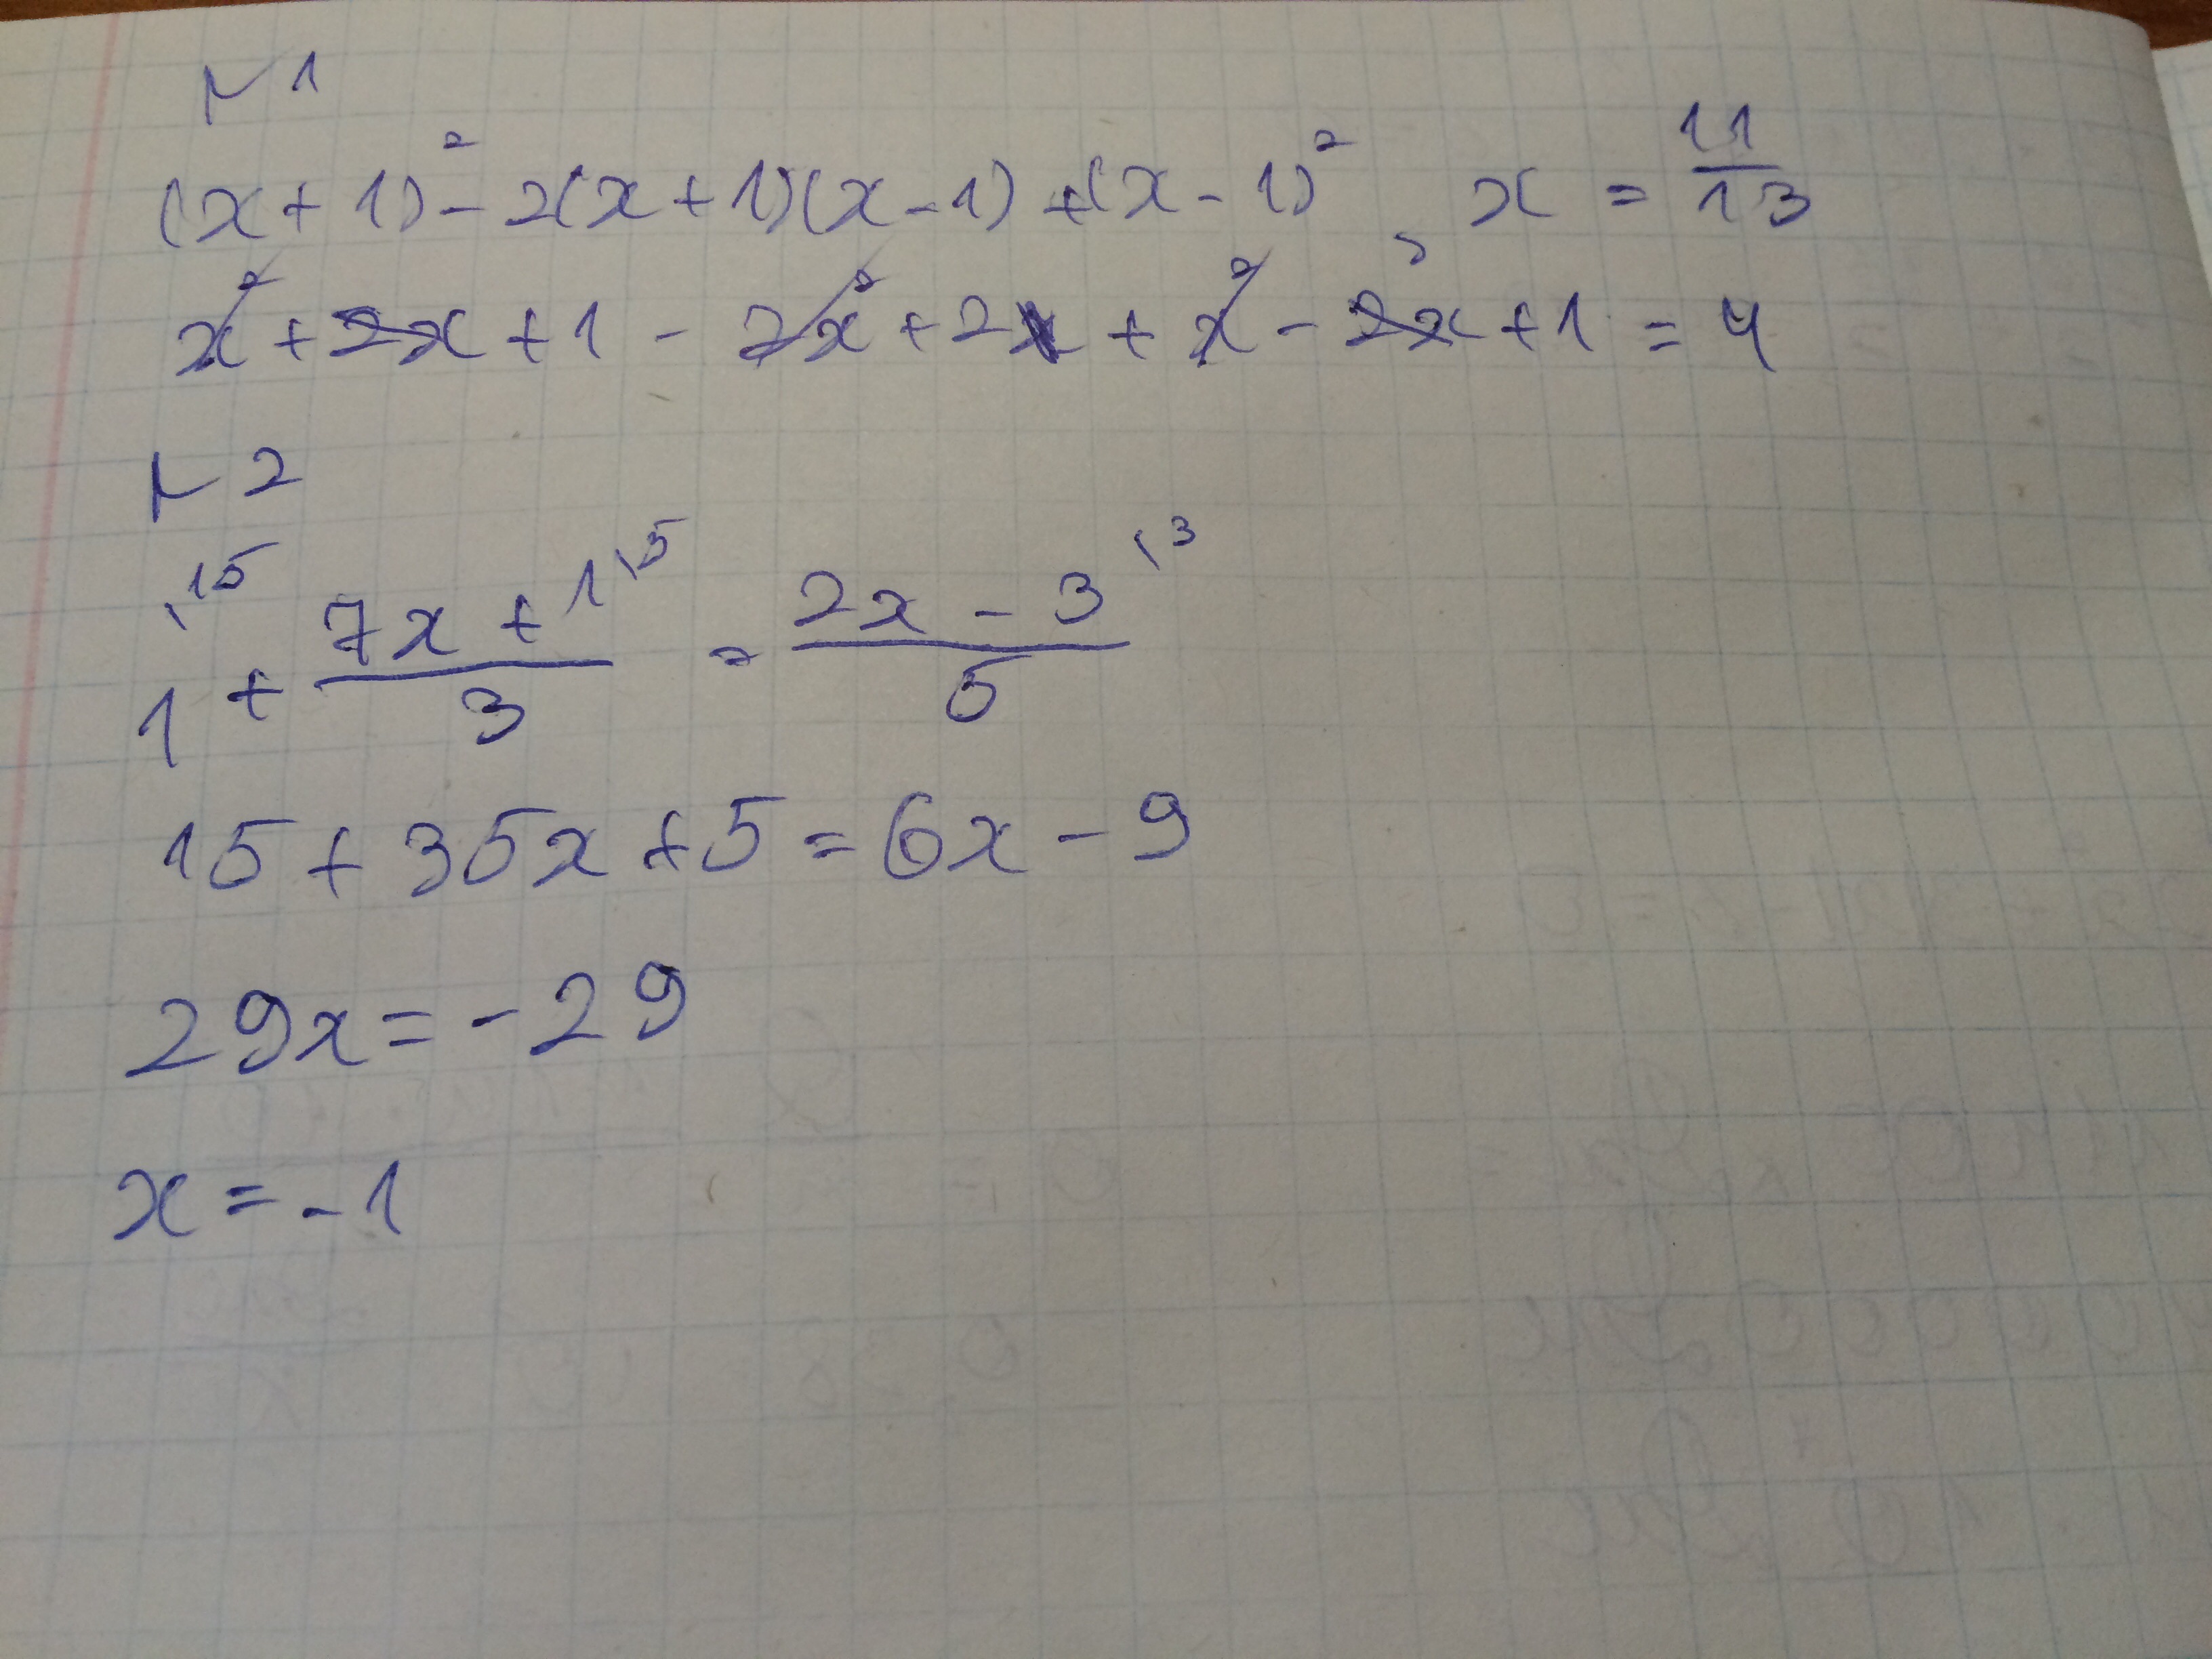 N 1
(x+1)² - 2(x+1)(x-1) + (x-1)², x = 11/13
x² + 2x + 1 - 2x² + 2 + x² - 2x + 1 = 4
N 2
1\15 + (7x+1)/3\5 = (2x-3)/5\3
15 + 35x + 5 = 6x - 9
29x = -29
x = -1